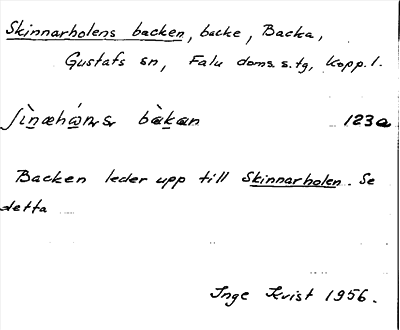 Skinnarholens backen, backe, Backa,
Gustafs sn, Falu doms.s.tg, Kopp. l.
bàkan 123a
Backen leder upp till Skinnarholen. Se
detta
Inge Kvist 1956.